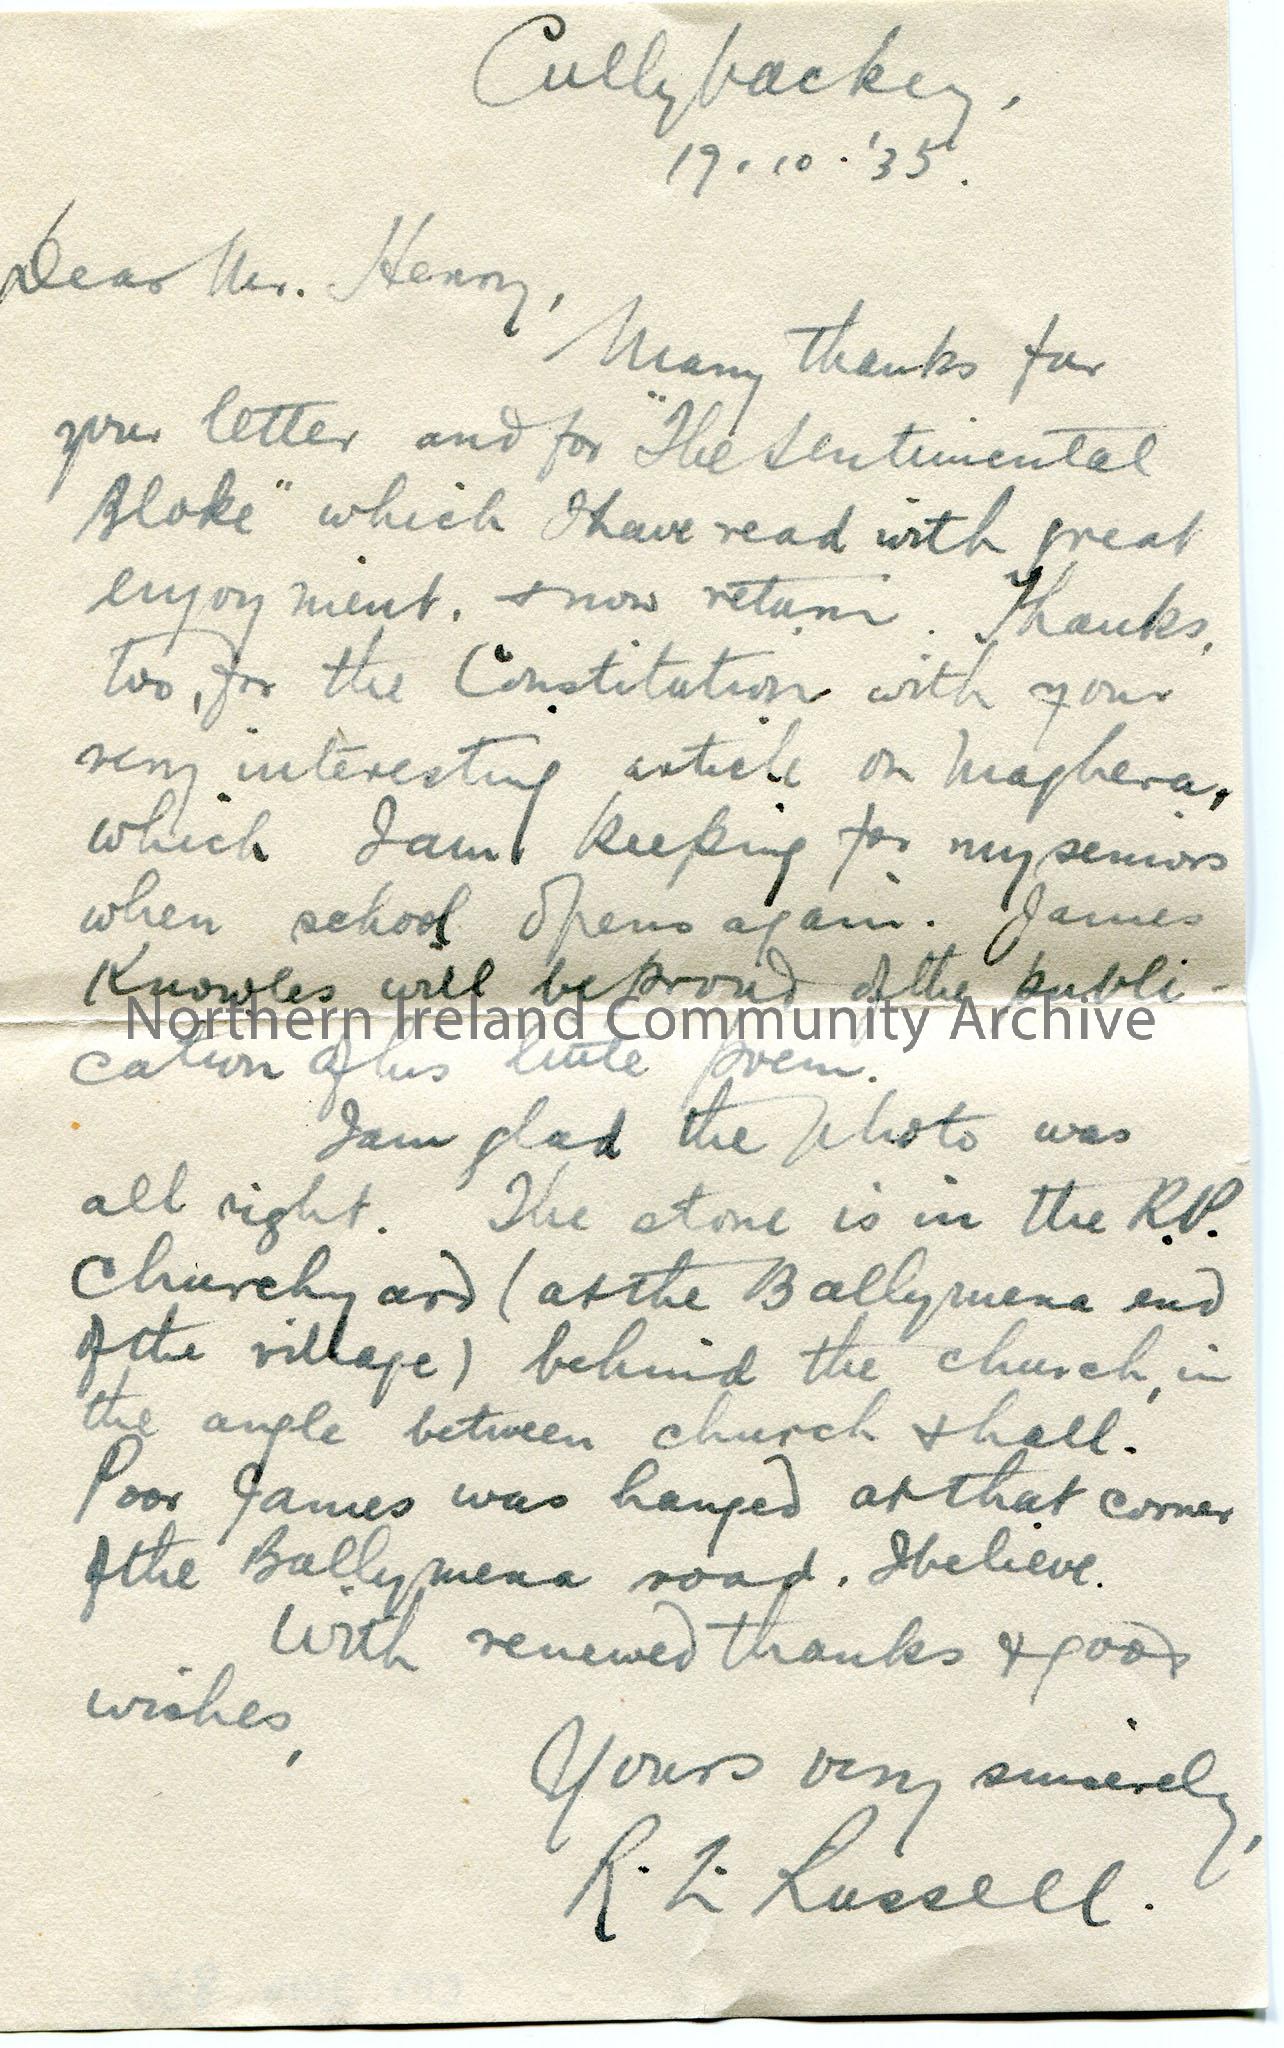 Cullybackey,
19.10.'35.
Dear Mr. Henry,
Many thanks for
your letter and for "The Sentimental
Bloke" which I have read with great
enjoyment, & now return. Thanks,
too, for the Constitution with your
very interesting article on Maghera,
which I am keeping for my seniors
when school opens again. James
Knowles will be proud of the publi-
cation of his little poem.
I am glad the photo was
all right. The stone is in the R.P.
Churchyard (at the Ballymena end
of the village) behind the church, in
the angle between church & hall.
Poor James was hanged at that corner
of the Ballymena road, I believe.
With renewed thanks & good
wishes,
Yours very sincerely,
R. L. Russell.
Northern Ireland Community Archive